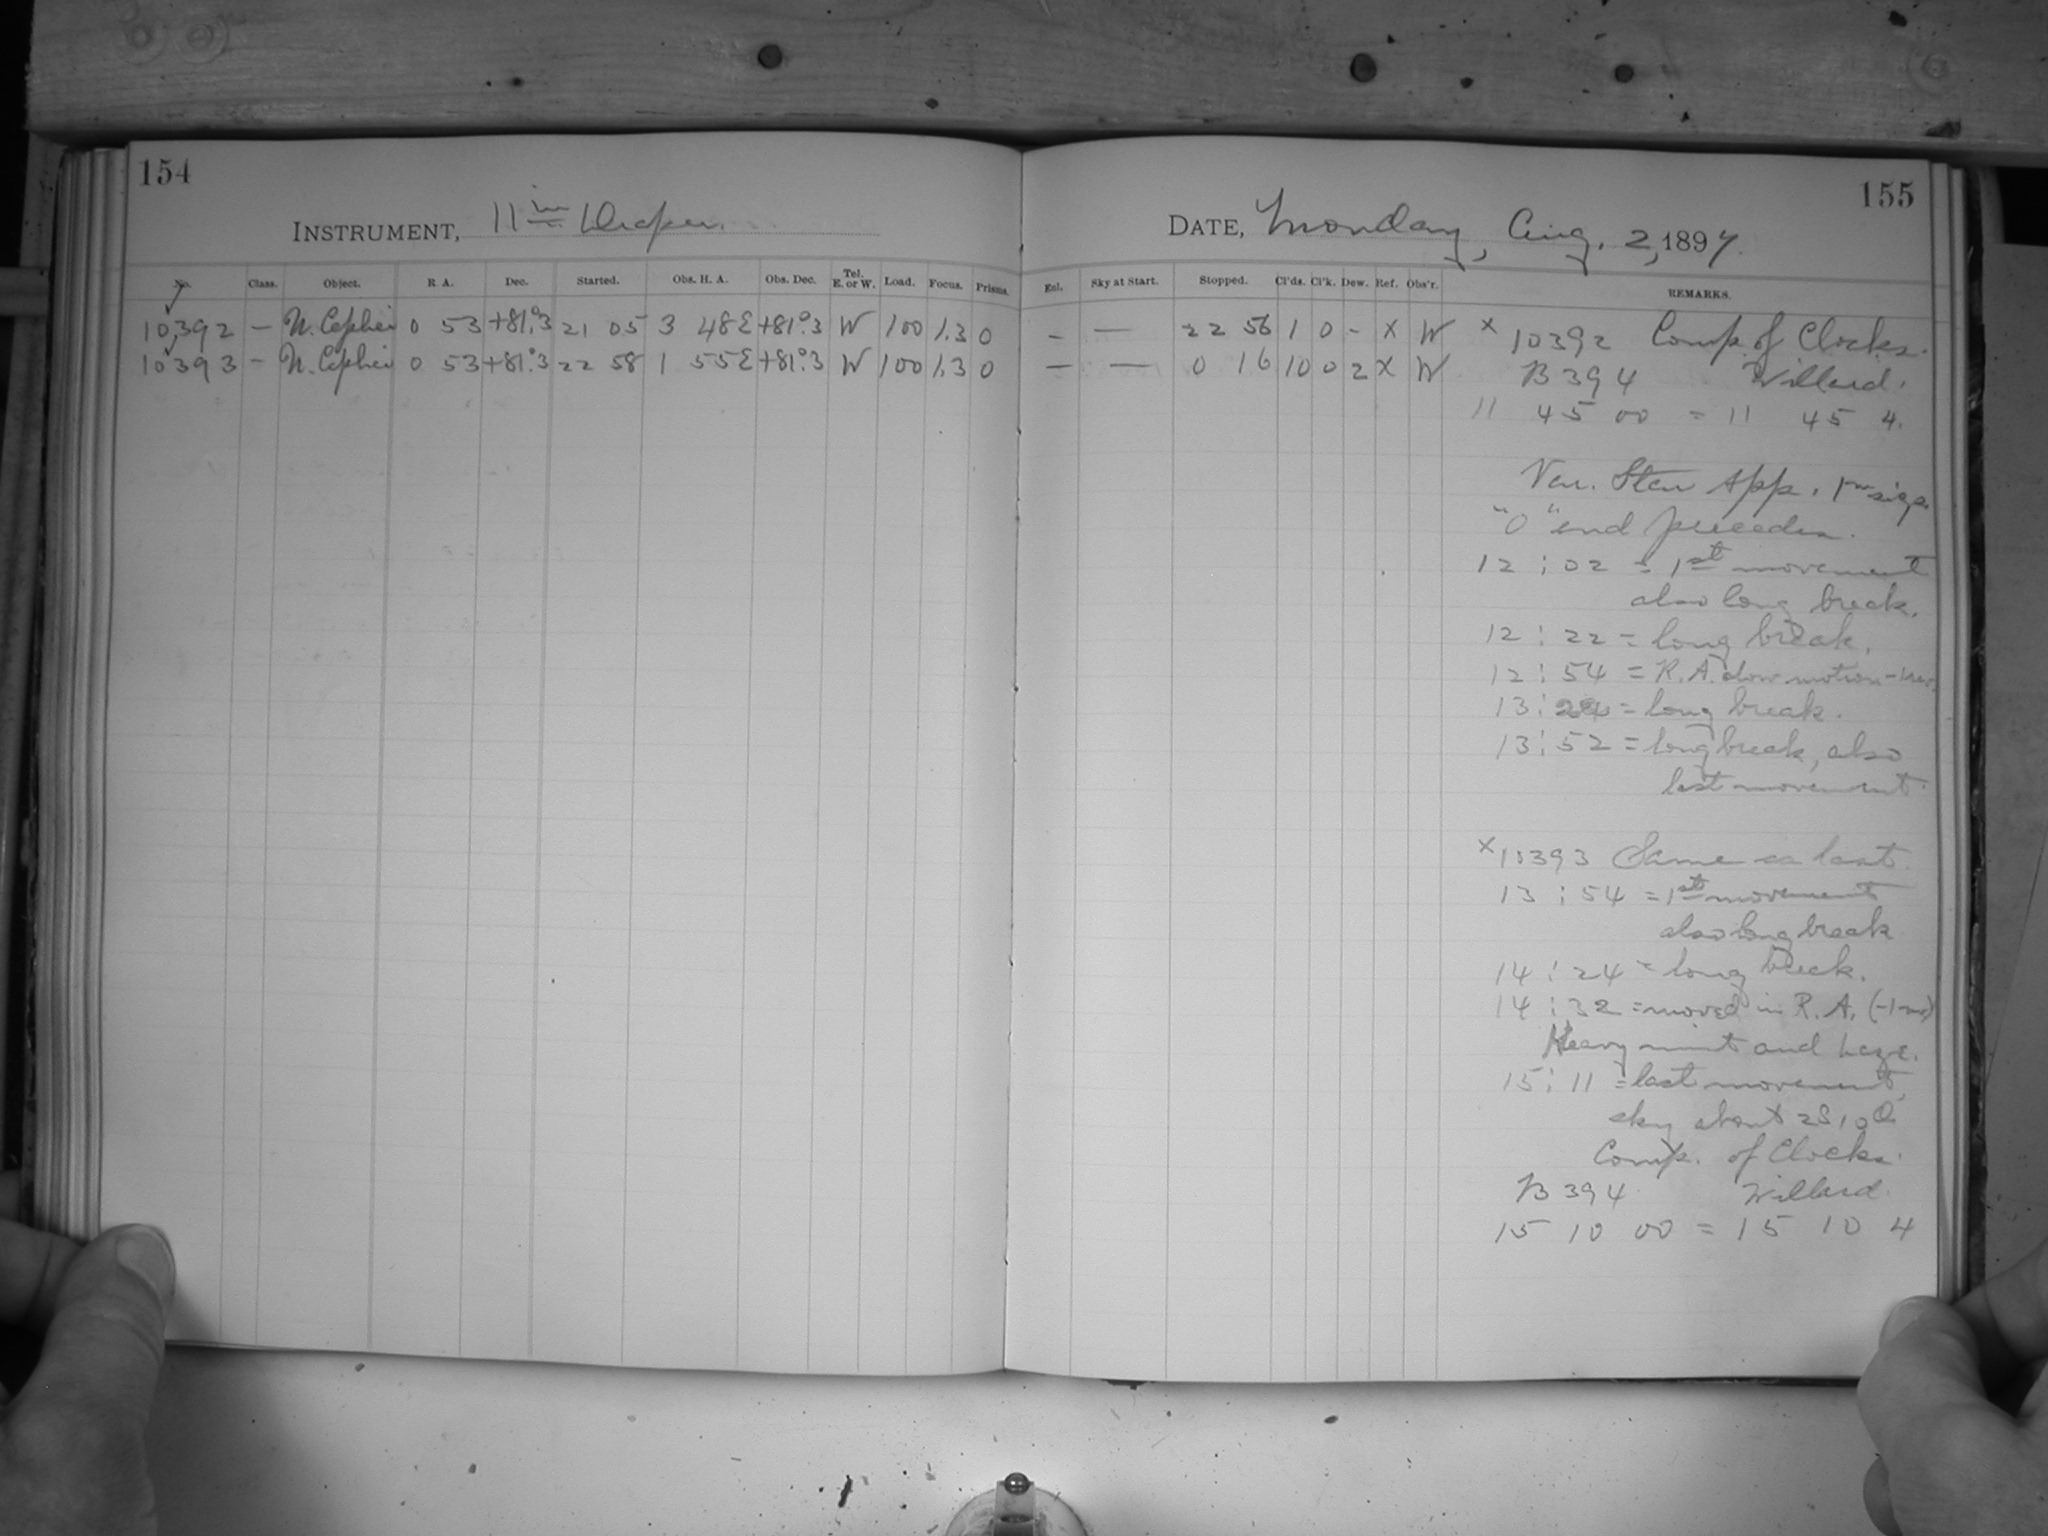 154
INSTRUMENT, 11 in Draper.
No. Class. Object. R. A. Dec. Started. Obs. H. A. Obs. Dec. Tel. E. or W. Load. Focus. Prisms.
10,392 — U. Cephei 0 53 +81°.3 21 05 3 48 E +81°.3 W 100 1.3 0
10393 — U. Cephei 0 53 +81°.3 22 58 1 55 E +81°.3 W 100 1.3 0
155
DATE, Monday, Aug. 2, 1897.
Exl. Sky at Start. Stopped. Cl'ds. Cl'k. Dew. Ref. Obs'r. REMARKS.
— — 22 56 1 0 - X W
— — 0 16 10 0 2 X W
x 10392 Comp. of Clocks.
B 394 Willard.
11 45 00 = 11 45 4.
Var. Star App. 1m sigs.
"O" end precedes.
12 : 02 = 1st movement
also long break.
12 : 22 = long break.
12 : 54 = R. A. slow motion - 1 rev.
13 : 24 = long break.
13 : 52 = long break, also
last movement.
x 10393 Same as last.
13 : 54 = 1st movement
also long break
14 : 24 = long break.
14 : 32 = moved in R. A. (-1 rev)
Heavy mist and haze.
15 : 11 = last movement,
sky about
Comp. of Clocks.
B 394 Willard.
15 10 00 = 15 10 4